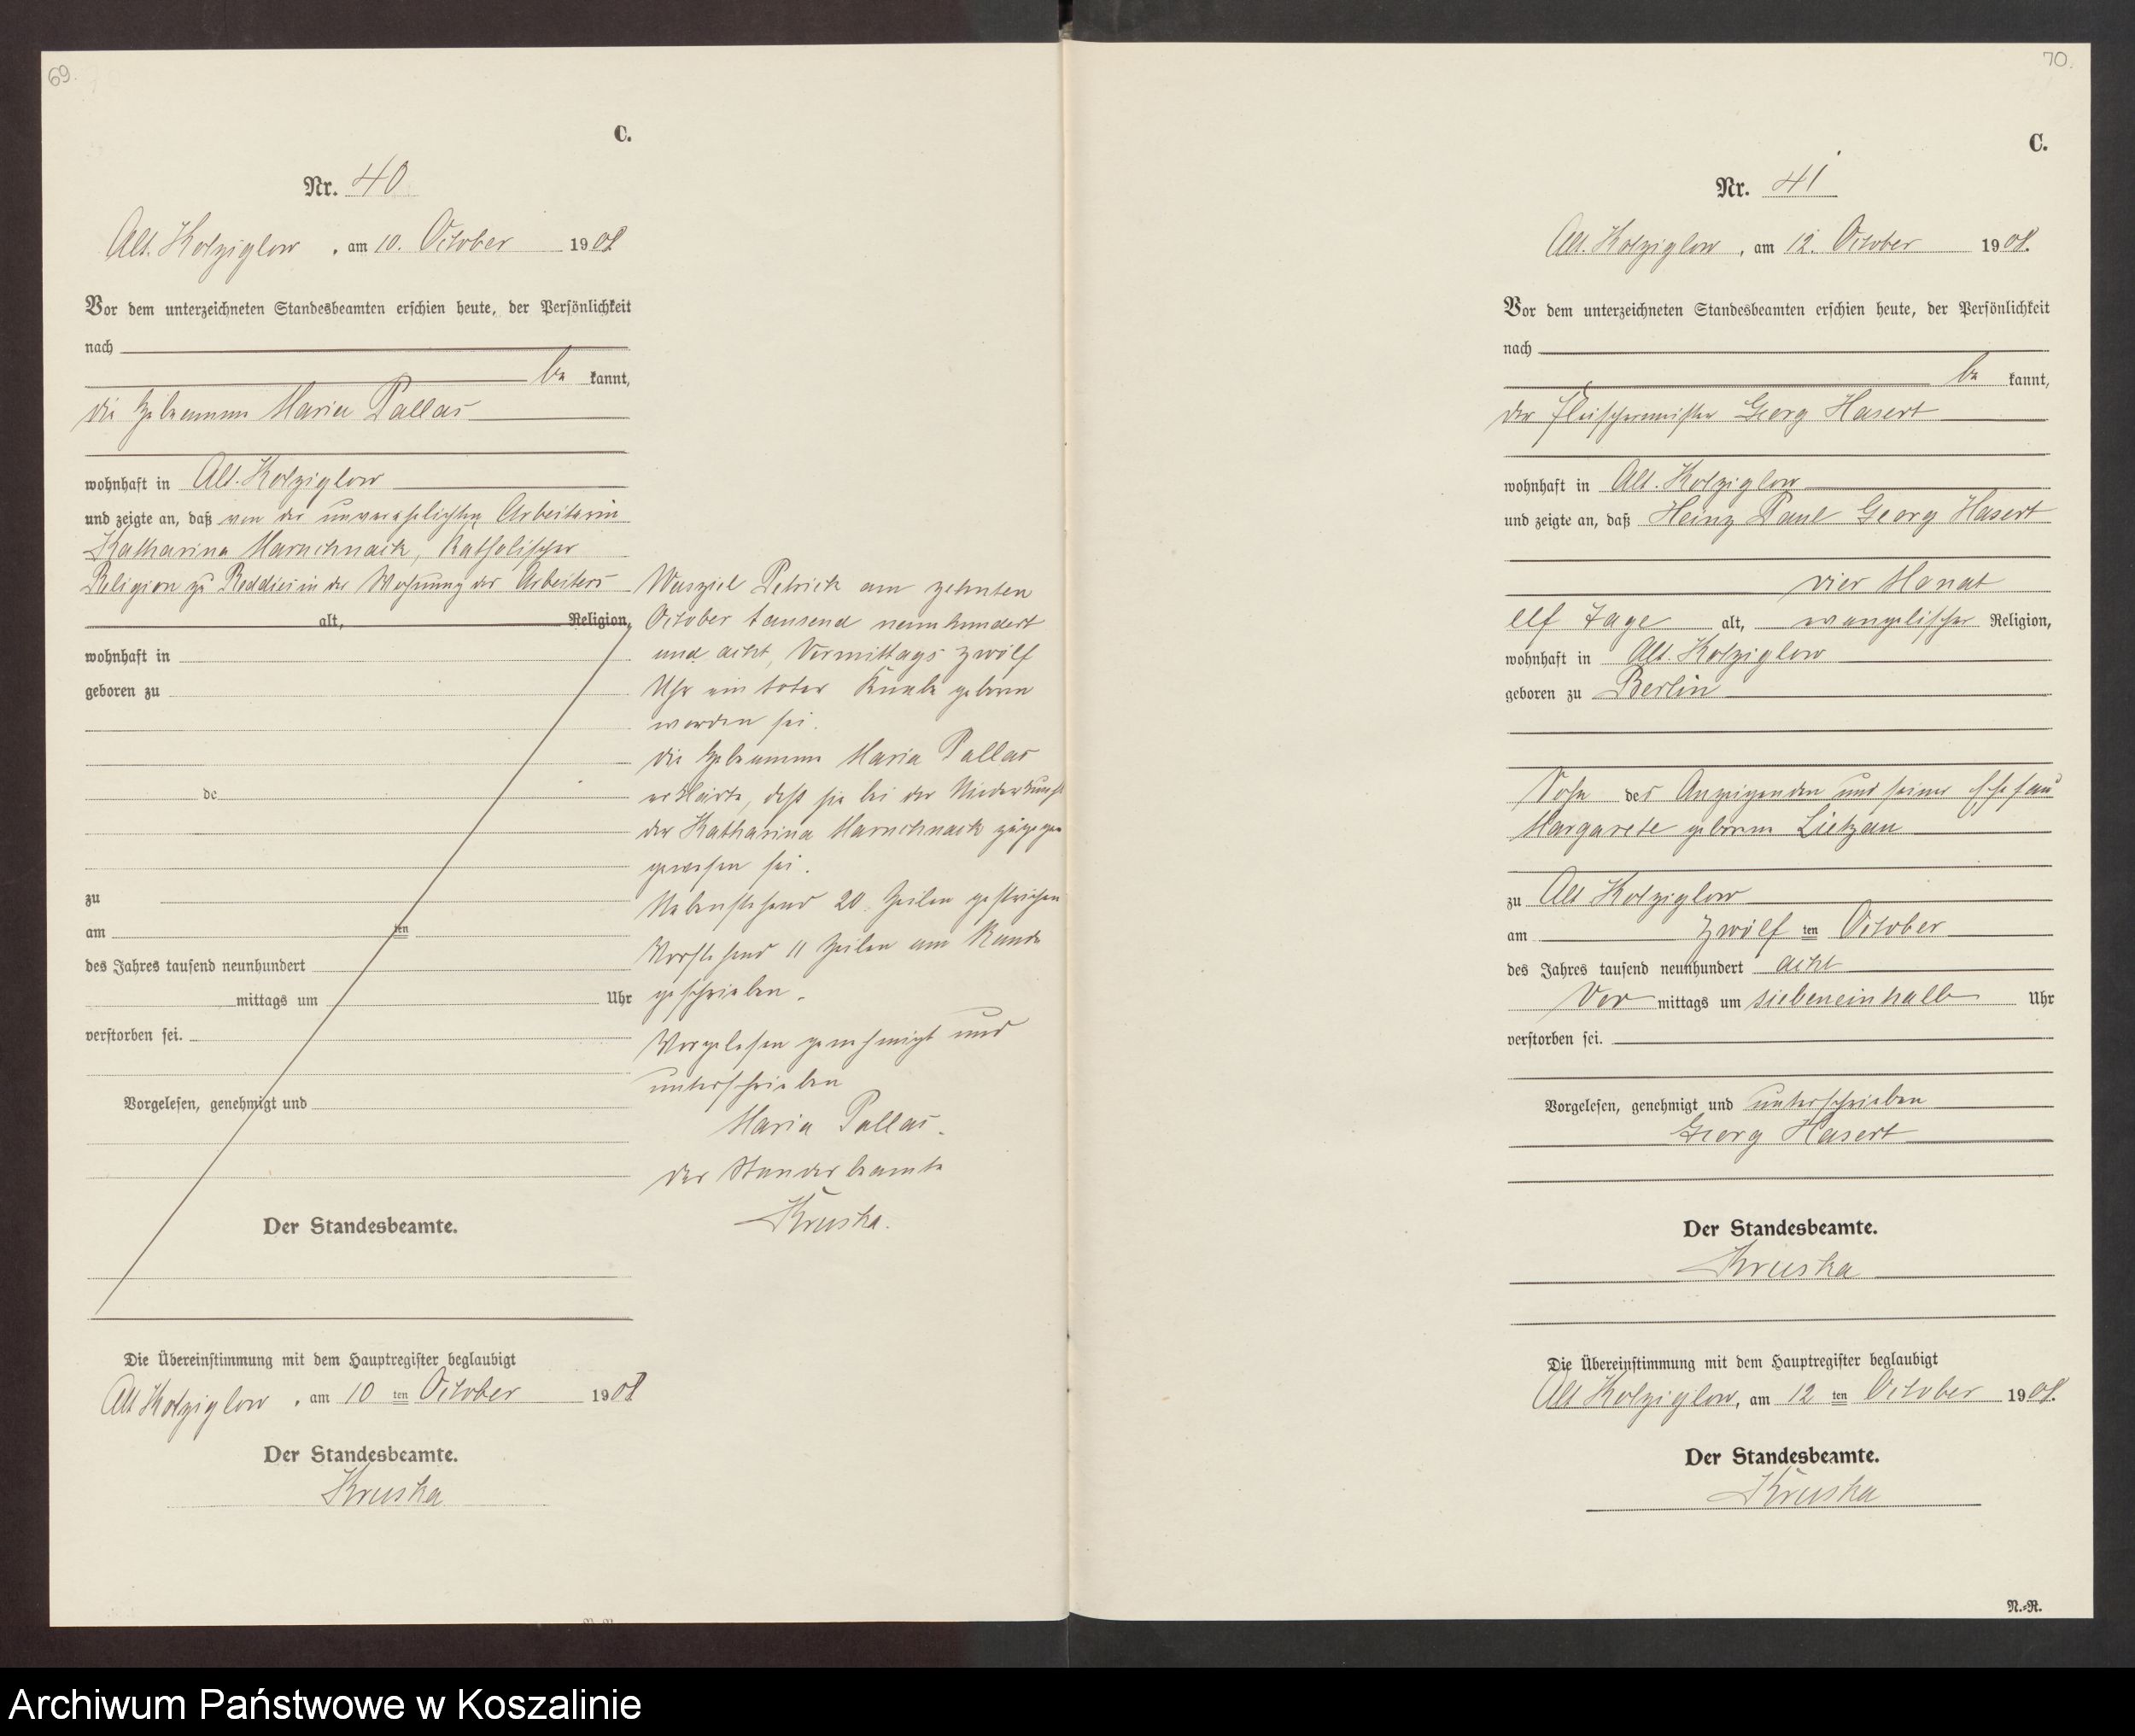 69.
C.
Nr. 40
Alt. Kolziglow, am 10. October 1908
Vor dem unterzeichneten Standesbeamten erschien heute, der Persönlichkeit
nach
be kannt,
die Hebamme Maria Pallas
wohnhaft in Alt. Kolziglow
und zeigte an, daß von der unverehelichten Arbeiterin
Katharina, Katholischer
Religion zu Reddies in der Wohnung des Arbeiters
alt, Religion,
wohnhaft in
geboren zu
de
zu
am ten
des Jahres tausend neunhundert
mittags um Uhr
verstorben sei.
Vorgelesen, genehmigt und
Der Standesbeamte.
Wasziel Petrick am zehnten
October tausend neunhundert
und acht, Vormittags zwölf
Uhr ein toter Knabe geboren
worden sei.
Die Hebamme Maria Pallas
erklärte, daß sie bei der Niederkunft
der Katharina zugegen
gewesen sei.
Nebenstehend 20 Zeilen gestrichen
Vorstehend 11 Zeilen am Rande
geschrieben.
Vorgelesen genehmigt und
unterschrieben
Maria Pallas.
Der Standesbeamte
Kruska.
Die Übereinstimmung mit dem Hauptregister beglaubigt
Alt Kolziglow, am 10 ten October 1908
Der Standesbeamte.
Kruska
70.
C.
Nr. 41
Alt. Kolziglow, am 12. October 1908.
Vor dem unterzeichneten Standesbeamten erschien heute, der Persönlichkeit
nach
be kannt,
der Fleischermeister Georg Hasert
wohnhaft in Alt. Kolziglow
und zeigte an, daß Heinz Paul Georg Hasert
vier Monat
elf Tage alt, evangelischer Religion,
wohnhaft in Alt. Kolziglow
geboren zu Berlin
Sohn des Anzeigenden und seiner Ehefrau
Margarete geborene Lietzau
zu Alt Kolziglow
am zwölf ten October
des Jahres tausend neunhundert acht
Vor mittags um siebeneinhalb Uhr
verstorben sei.
Vorgelesen, genehmigt und unterschrieben
Georg Hasert
Der Standesbeamte.
Kruska
Die Übereinstimmung mit dem Hauptregister beglaubigt
Alt Kolziglow, am 12 ten October 1908.
Der Standesbeamte.
Kruska
N.-R.
Archiwum Państwowe w Koszalinie